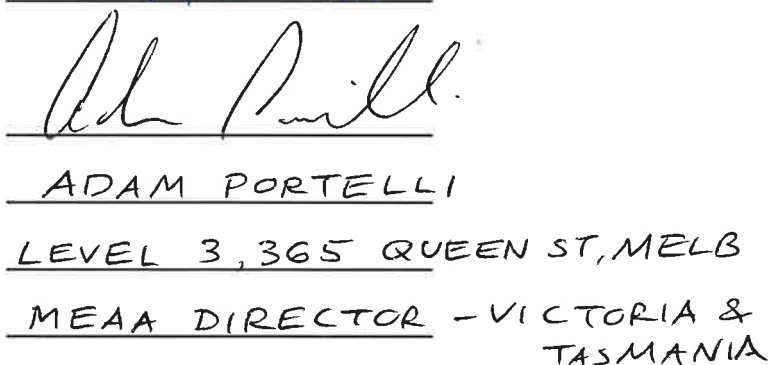 ADAM PORTELLI
LEVEL 3, 365 QUEEN ST, MELB
MEAA DIRECTOR - VICTORIA &
TASMANIA